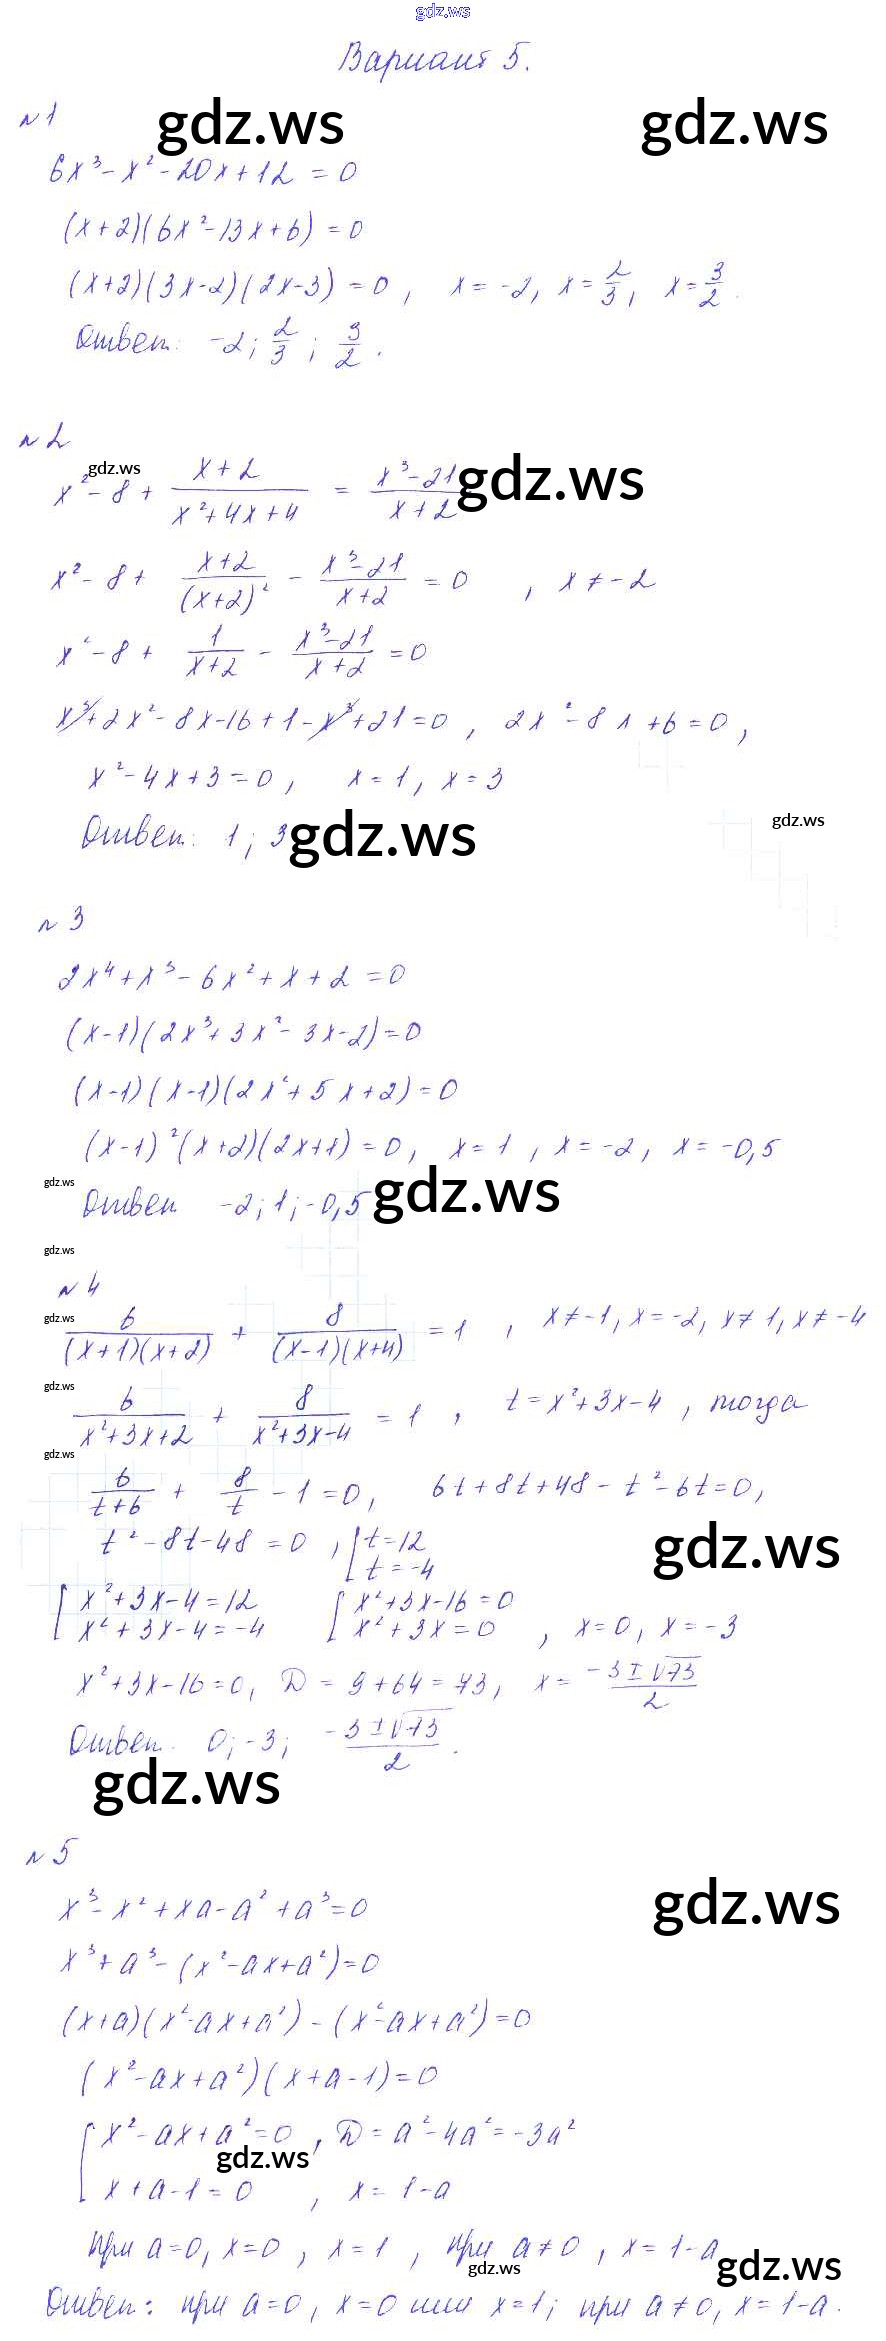 gdz.ws
Вариант 5.
№1
gdz.ws gdz.ws
6x³ - x² - 20x + 12 = 0
(x+2)(6x² - 13x + 6) = 0
(x+2)(3x-2)(2x-3) = 0, x = -2, x = 2/3, x = 3/2.
Ответ: -2; 2/3; 3/2.
№2
gdz.ws gdz.ws
x² - 8 + (x+2)/(x²+4x+4) = (x³-21)/(x+2)
x² - 8 + (x+2)/(x+2)² - (x³-21)/(x+2) = 0, x ≠ -2
x² - 8 + 1/(x+2) - (x³-21)/(x+2) = 0
x³ + 2x² - 8x - 16 + 1 - x³ + 21 = 0, 2x² - 8x + 6 = 0,
x² - 4x + 3 = 0, x = 1, x = 3
Ответ: 1; 3
gdz.ws gdz.ws
№3
2x⁴ + x³ - 6x² + x + 2 = 0
(x-1)(2x³ + 3x² - 3x - 2) = 0
(x-1)(x-1)(2x² + 5x + 2) = 0
(x-1)²(x+2)(2x+1) = 0, x = 1, x = -2, x = -0,5
gdz.ws
Ответ -2; 1; -0,5 gdz.ws
gdz.ws
№4
gdz.ws
6/((x+1)(x+2)) + 8/((x-1)(x+4)) = 1, x ≠ -1, x = -2, x ≠ 1, x ≠ -4
gdz.ws
6/(x²+3x+2) + 8/(x²+3x-4) = 1, t = x²+3x-4, тогда
gdz.ws
6/(t+6) + 8/t - 1 = 0, 6t + 8t + 48 - t² - 6t = 0,
t² - 8t - 48 = 0, [t = 12
t = -4
gdz.ws
[x² + 3x - 4 = 12 [x² + 3x - 16 = 0
x² + 3x - 4 = -4 x² + 3x = 0, x = 0, x = -3
x² + 3x - 16 = 0, D = 9 + 64 = 73, x = (-3 ± √73)/2
Ответ. 0; -3; (-3 ± √73)/2.
gdz.ws
№5
gdz.ws
x³ - x² + xa - a² + a³ = 0
x³ + a³ - (x² - ax + a²) = 0
(x+a)(x² - ax + a²) - (x² - ax + a²) = 0
(x² - ax + a²)(x + a - 1) = 0
[x² - ax + a² = 0, D = a² - 4a² = -3a²
gdz.ws
x + a - 1 = 0, x = 1 - a
при a = 0, x = 0, x = 1, при a ≠ 0, x = 1 - a
gdz.ws gdz.ws
Ответ: при a = 0, x = 0 или x = 1; при a ≠ 0, x = 1 - a.